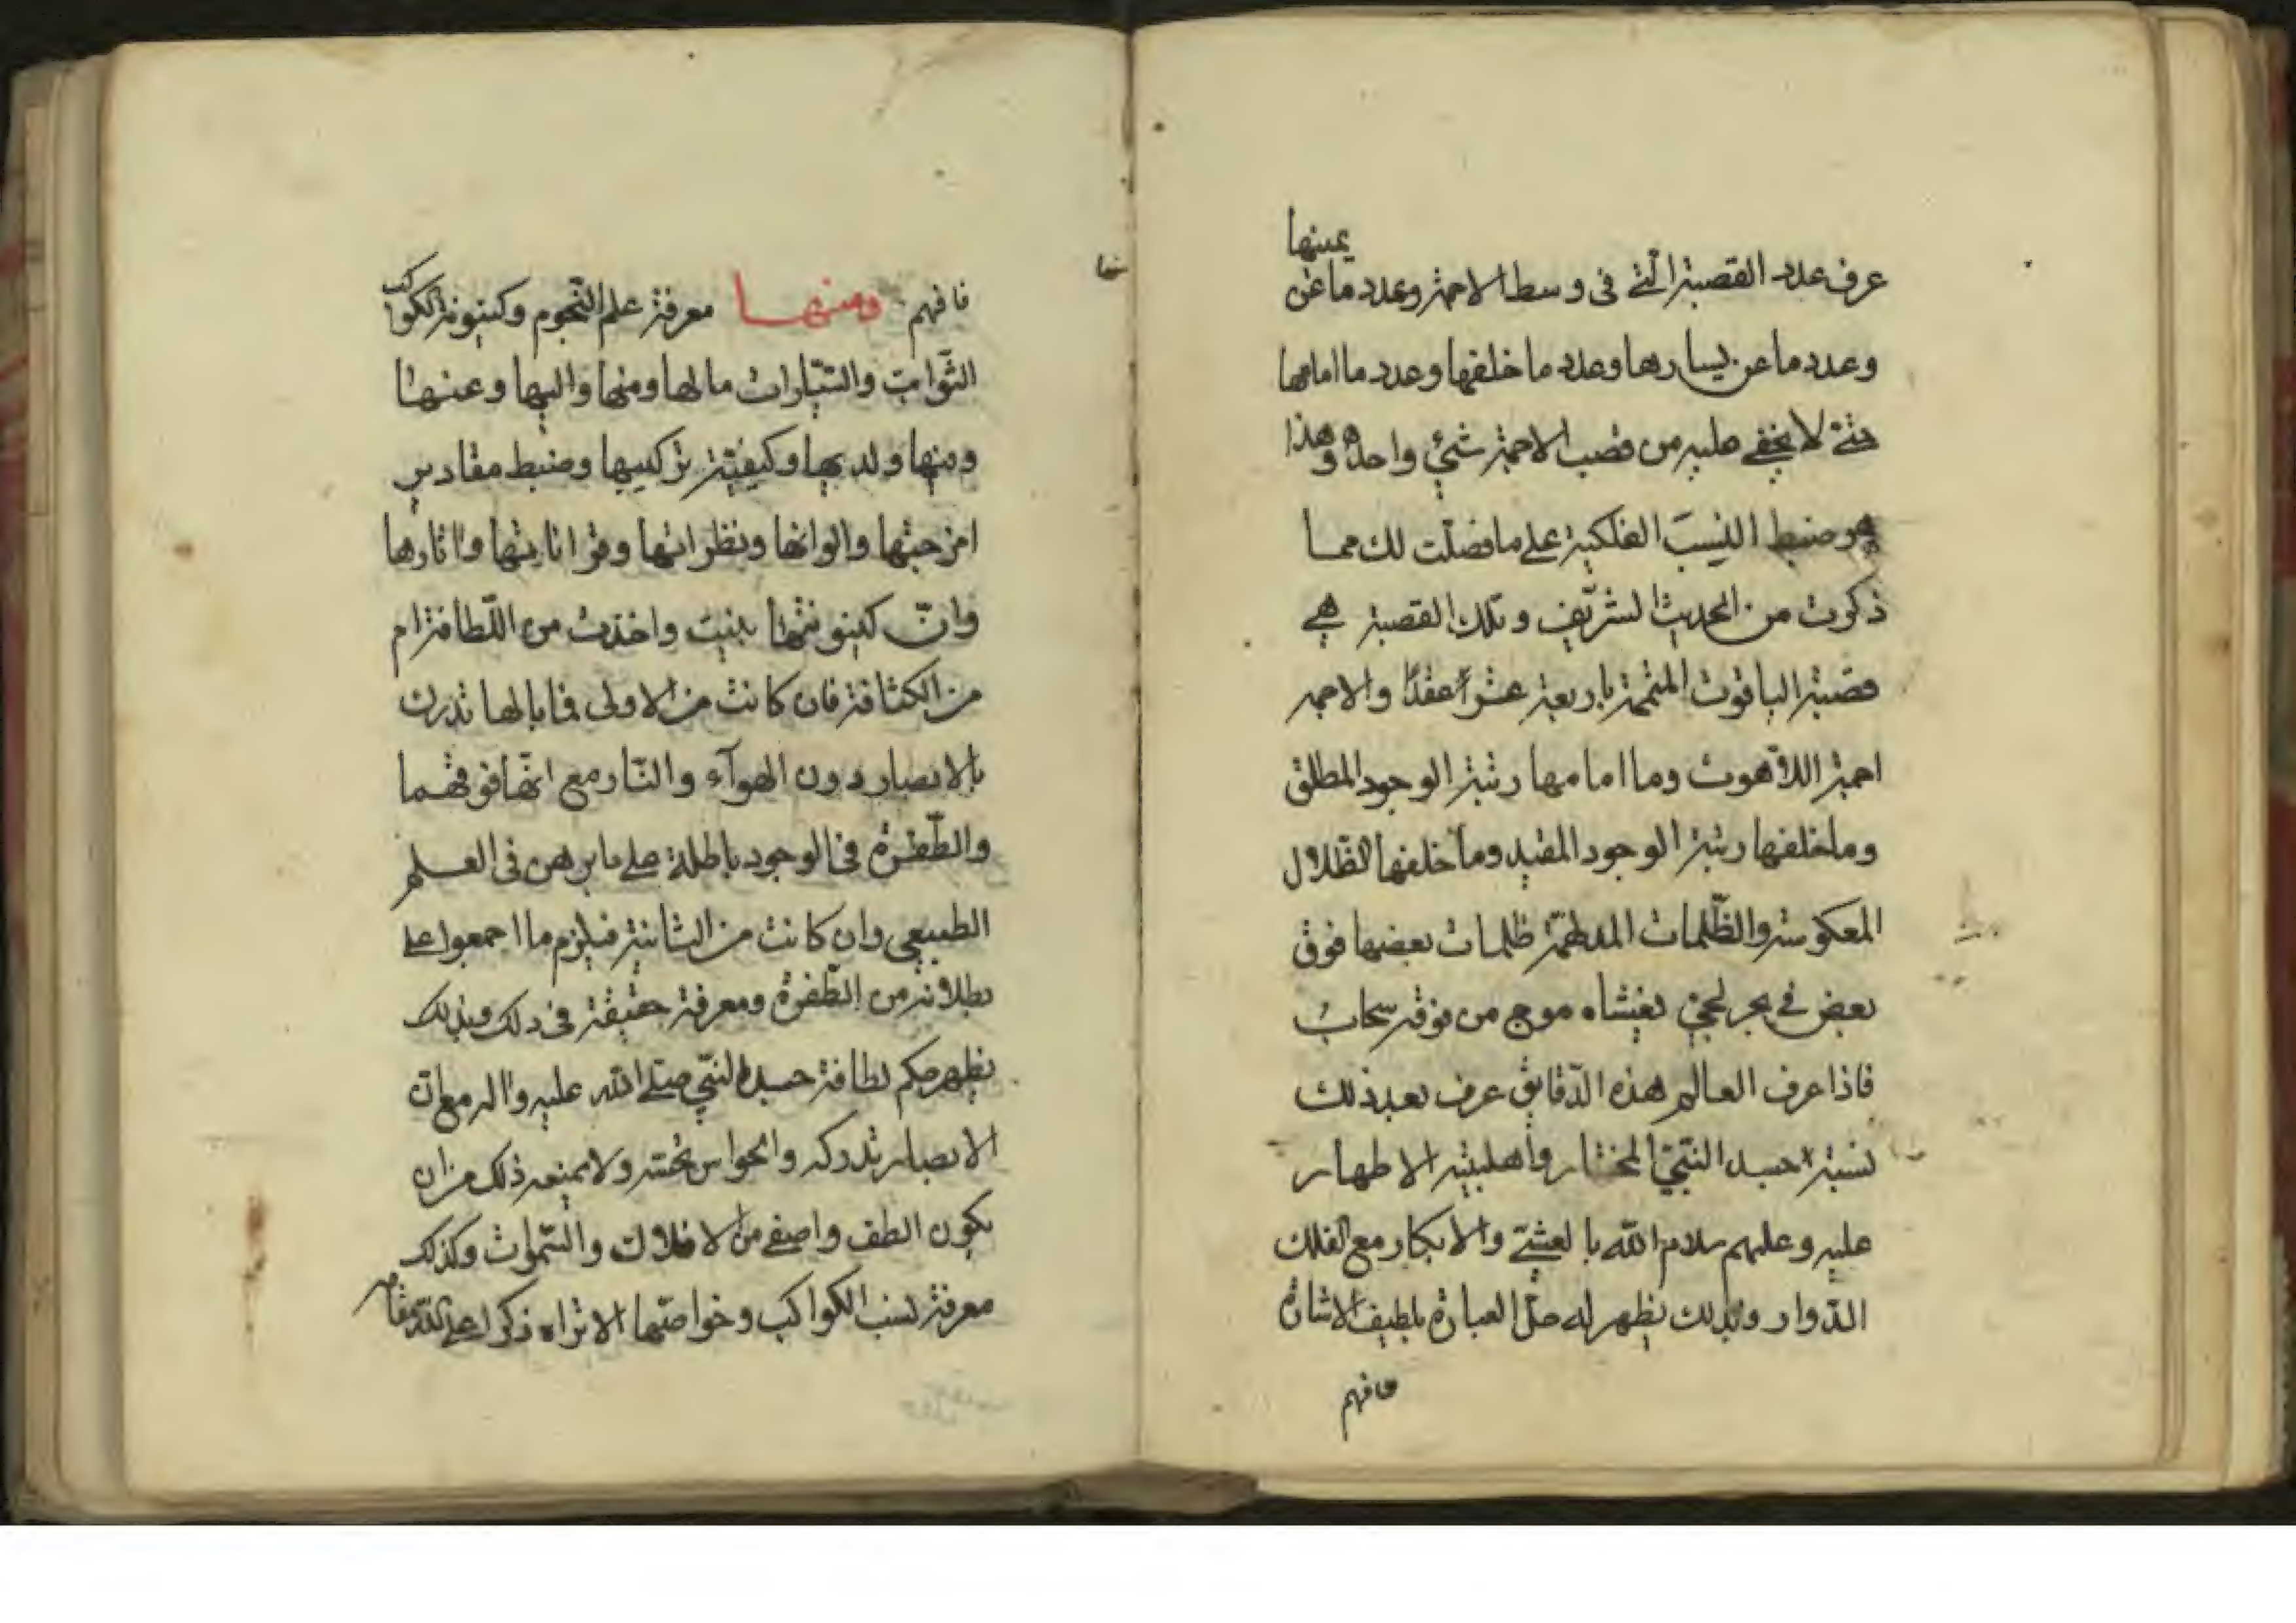 يمينها
عرف عدد القصبة الّتي في وسط الاجمة وعدد ما عن
وعدد ما عن يسارها وعدد ما خلفها وعدد ما امامها
حتّى لا يخفى عليه من قصب الاجمة شئ واحد وهذا
هو ضبط النِسَب الفلكية على ما فصّلت لك مما
ذكرت من الحديث الشريف وتلك القصبة هي
قصبة الياقوت المثمرة باربعة عشر عقدًا والاجمه
اجمة اللاهوت وما امامها رتبة الوجود المطلق
وما خلفها رتبة الوجود المقيد وما خلفها الظّلال
المعكوسة والظّلمات المدلهمّة ظلمات بعضها فوق
بعض في بحر لجّيّ يغشاه موج من فوقه سحاب
فاذا عرف العالم هذه الدّقايق عرف بعد ذلك
نسبة جسد النّبيّ المختار واهلبيته الاطهار
عليه وعليهم سلام الله بالعشيّ والابكار مع الفلك
الدّوار وبذلك يظهر له حلّ العبارة بلطيف الاشارة
فافهم
فافهم ومنها معرفة علم النّجوم وكينونة الكواكب
الثّوابت والسّيّارات ما لها ومنها واليها وعنها
ومنها ولديها وكيفيّة تركيبها وضبط مقادير
امزجتها والوانها ونظراتها وقراناتها واثارها
وانّ كينونتها بنيت واخذت من اللّطافة ام
من الكثافة فان كانت من الاولى فما بالها تدرك
بالابصار دون الهوآء والنّار مع انّها فوقهما
والطّفرة في الوجود باطلة على ما برهن في العلم
الطبيعي وان كانت من الثانية فيلزم ما اجمعوا على
بطلانه من الطّفرة ومعرفة حقيقة في ذلك وبذلك
يظهر حكم لطافة جسد النبيّ صلّى الله عليه واله مع ان
الابصار تدركه والحواس تحسّه ولا يمنعه ذلك من ان
يكون الطف واصفى من الافلاك والسّموات وكذلك
معرفة نسب الكواكب وخواصّها الا تراه ذكر اعلى الله مقامه